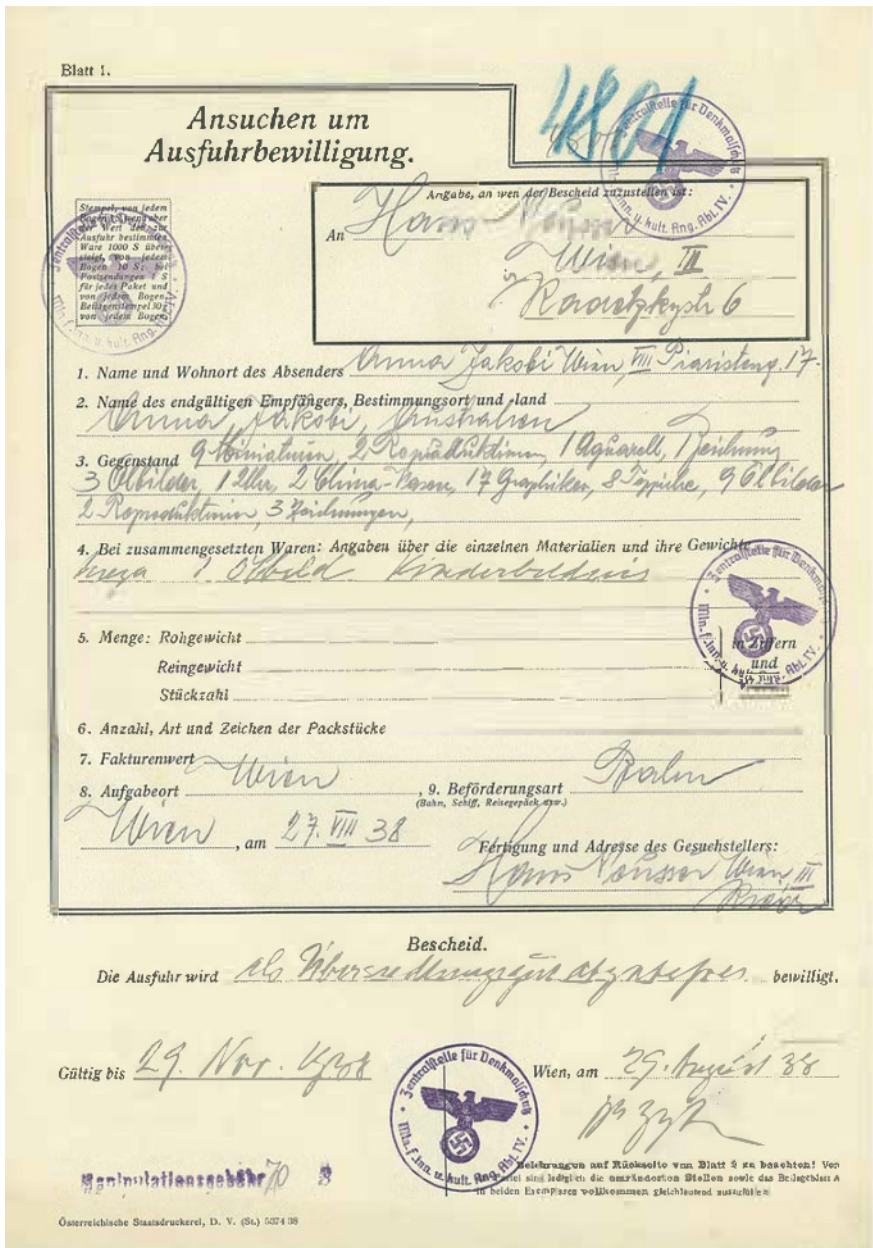 Blatt 1.
4801
Ansuchen um
Ausfuhrbewilligung.
Zentralstelle für Denkmalschutz
Min. f. inn. u. kult. Ang. Abt. IV.
Stempel, von jedem
Bogen
Wert der zur
Ausfuhr bestimmten
Ware 1000 S über-
steigt, von jedem
Bogen 10 S; bei
Postsendungen 1 S
für jedes Paket und
von jedem Bogen,
Beilagenstempel 30 g
von jedem Bogen.
Zentralstelle für Denkmalschutz
Min. f. inn. u. kult. Ang. Abt. IV.
Angabe, an wen der Bescheid zuzustellen ist:
An Hans
Wien, III
Radetzkystr 6
1. Name und Wohnort des Absenders Anna Jakobi Wien, VIII Piaristeng. 17
2. Name des endgültigen Empfängers, Bestimmungsort und -land
Anna Jakobi, Australien
3. Gegenstand 9 Miniaturen, 2 Reproduktionen, 1 Aquarell, 1 Zeichnung
3 Ölbilder, 1 Uhr, 2 China-Vasen, 17 Graphiken, 8 Teppiche, 9 Ölbilder
2 Reproduktionen, 3 Zeichnungen,
4. Bei zusammengesetzten Waren: Angaben über die einzelnen Materialien und ihre Gewichte
1 Ölbild Kinderbildnis
Zentralstelle für Denkmalschutz
Min. f. inn. u. kult. Ang. Abt. IV.
5. Menge: Rohgewicht
in Ziffern
Reingewicht
und
Stückzahl
6. Anzahl, Art und Zeichen der Packstücke
7. Fakturenwert
8. Aufgabeort Wien, 9. Beförderungsart Bahn
(Bahn, Schiff, Reisegepäck usw.)
Wien, am 27. VIII 38
Fertigung und Adresse des Gesuchstellers:
Hans Wien, III
Bescheid.
Die Ausfuhr wird als Übersiedlungsgut abgabefrei bewilligt.
Gültig bis 29. Nov. 1938
Wien, am 29. August 38
Zentralstelle für Denkmalschutz
Min. f. inn. u. kult. Ang. Abt. IV.
Manipulationsgebühr 70
Belehrungen auf Rückseite von Blatt 2 zu beachten! Von
sind lediglich die umränderten Stellen sowie das Beilageblatt A
in beiden Exemplaren vollkommen gleichlautend auszufüllen
Österreichische Staatsdruckerei, D. V. (St.) 5374 38